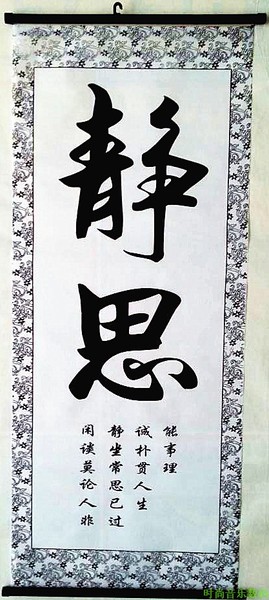 静思
能事理
诚朴贯人生
静坐常思己过
闲谈莫论人非